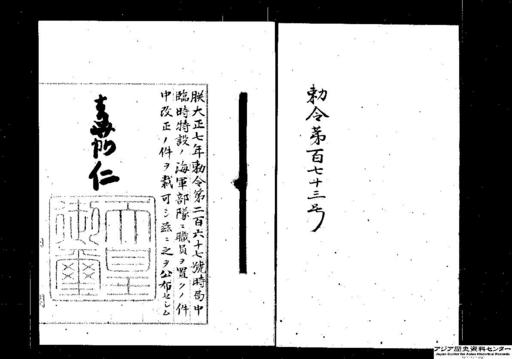 勅令第百七十三号
朕大正七年勅令第二百六十七號時局中
臨時特設ノ海軍部隊ニ職員ヲ置クノ件
中改正ノ件ヲ裁可シ茲ニ之ヲ公布セシム
嘉仁
天皇
御璽
アジア歴史資料センター
Japan Center for Asian Historical Records